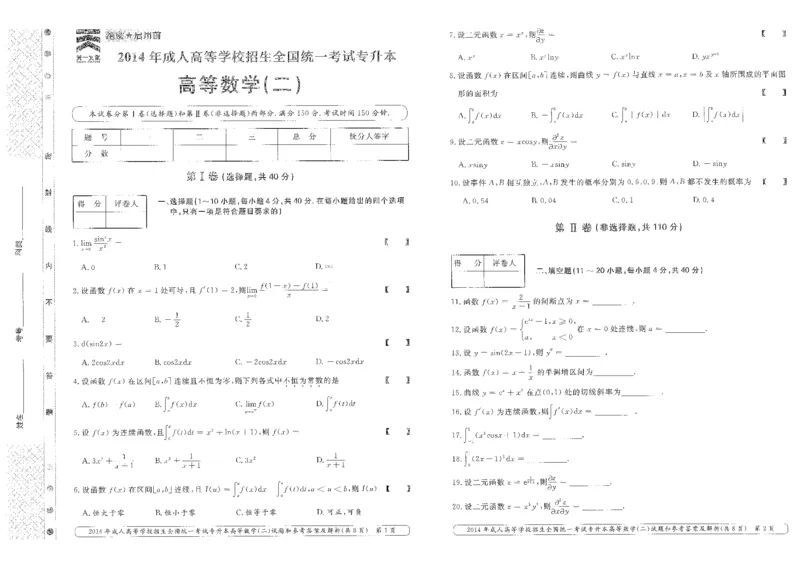 天一文化
2014年成人高等学校招生全国统一考试专升本
高等数学(二)
本试卷分第Ⅰ卷(选择题)和第Ⅱ卷(非选择题)两部分.满分150分.考试时间150分钟.
题 号 一 二 三 总 分 统分人签字
分 数
第Ⅰ卷(选择题,共40分)
得 分 评卷人
一、选择题(1~10小题,每小题4分,共40分.在每小题给出的四个选项
中,只有一项是符合题目要求的)
1.lim x→0 sin²x/x² = 【 】
A.0 B.1 C.2 D.∞
2.设函数f(x)在x=1处可导,且f′(1)=2,则lim x→0 f(1-x)-f(1)/x = 【 】
A.-2 B.-1/2 C.1/2 D.2
3.d(sin2x)= 【 】
A.2cos2xdx B.cos2xdx C.-2cos2xdx D.-cos2xdx
4.设函数f(x)在区间[a,b]连续且不恒为零,则下列各式中不恒为常数的是 【 】
A.f(b)-f(a) B.∫f(x)dx C.lim f(x) D.∫f(t)dt
5.设f(x)为连续函数,且∫f(t)dt=x³+ln(x+1),则f(x)= 【 】
A.3x²+1/(x+1) B.x³+1/(x+1) C.3x² D.1/(x+1)
6.设函数f(x)在区间[a,b]连续,且I(u)=∫f(x)dx-∫f(t)dt,a<u<b,则I(u) 【 】
A.恒大于零 B.恒小于零 C.恒等于零 D.可正,可负
2014年成人高等学校招生全国统一考试专升本高等数学(二)试题和参考答案及解析(共8页) 第1页
7.设二元函数z=xʸ,则∂z/∂y= 【 】
A.xʸ B.xʸlny C.xʸlnx D.yxʸ⁻¹
8.设函数f(x)在区间[a,b]连续,则曲线y=f(x)与直线x=a,x=b及x轴所围成的平面图
形的面积为 【 】
A.∫f(x)dx B.-∫f(x)dx C.∫|f(x)|dx D.|∫f(x)dx|
9.设二元函数z=xcosy,则∂²z/∂x∂y= 【 】
A.xsiny B.-xsiny C.siny D.-siny
10.设事件A,B相互独立,A,B发生的概率分别为0.6,0.9,则A,B都不发生的概率为 【 】
A.0.54 B.0.04 C.0.1 D.0.4
第Ⅱ卷(非选择题,共110分)
得 分 评卷人
二、填空题(11~20小题,每小题4分,共40分)
11.函数f(x)=2/(x-1)的间断点为x=________.
12.设函数f(x)={ -1,x≥0, a, x<0 在x=0处连续,则a=________.
13.设y=sin(2x-1),则y″=________.
14.函数f(x)=x-1/x的单调增区间为________.
15.曲线y=eˣ+x²在点(0,1)处的切线斜率为________.
16.设f′(x)为连续函数,则∫f′(x)dx=________.
17.∫(x³cosx+1)dx=________.
18.∫(2x-1)dx=________.
19.设二元函数z=e,则∂z/∂y=________.
20.设二元函数z=x³y²,则∂²z/∂x∂y=________.
2014年成人高等学校招生全国统一考试专升本高等数学(二)试题和参考答案及解析(共8页) 第2页
密
封
线
内
不
要
答
题
考号
姓名